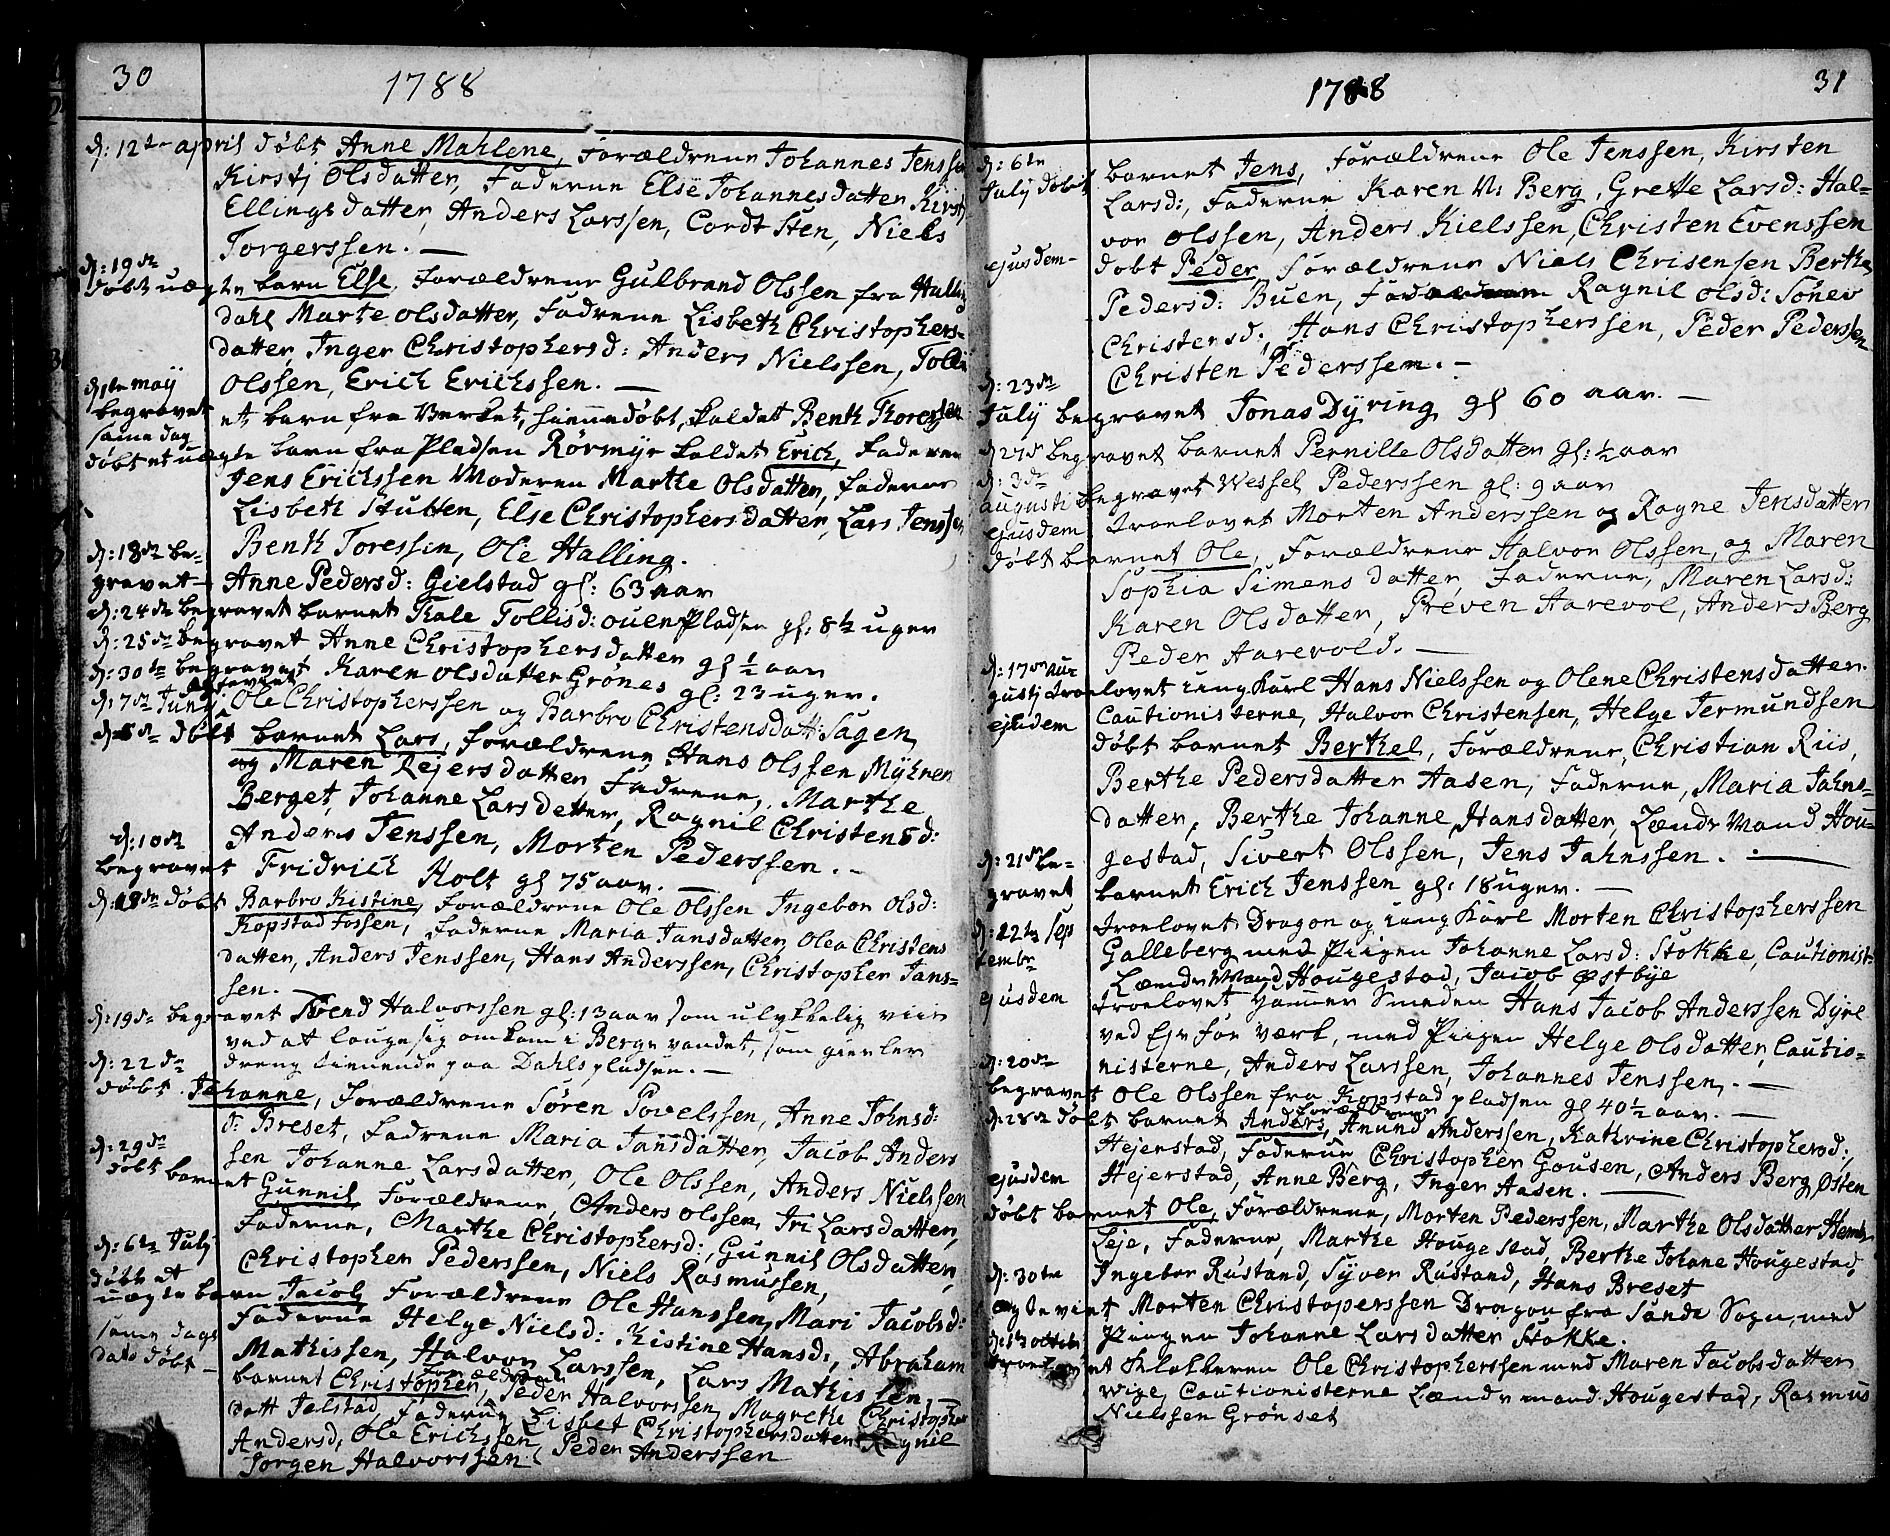 30
1788
d: 12te april døbt Anne Mahlene, Forældrene Johannes Jenssen
Kirstj Olsdatter, Faderne Else Johannesdatter, Kirstj
Ellingsdatter, Anders Larssen, Cordt Sten, Niels
Torgerssen. —
d: 19de
døbt uægte barn Else, Forældrene Gulbrand Olssen fra Hallin
dahl Marte olsdatter, Fadrene Lisbeth Christophers-
datter, Inger Christophersd: Anders Nielssen, Tolli
Olssen, Erich Erichssen. —
d 1te maij
begravet et barn fra Verket, hiemmedøbt, kaldet Benth Thoressen
same dag
døbt et uægte barn fra Pladsen Rörmyr kaldet Erich, Faderen
Jens Erichssen Moderen Marthe Olsdatter, faderne
Lisbeth Hutten, Else Christophersdatter, Lars Jenssen
Benth Toressen, Ole Halling.
d: 18de be-
gravet — Anne Pedersd: Gielstad gl: 63 aar
d: 24de begravet barnet Kale Tollisd: ouen Pladsen gl: 8½ uger
d: 25de begravet Anne Christophersdatter gl ½ aar
d: 30te begravet Karen olsdatter Grønes gl: 23 uger.
d: 7de Junij Ole Christopherssen og Barbro Christensdatt: Sagen
d: 8de døbt barnet Lars, Forældrene Hans Olssen Myhren
og Maren Rejersdatter, Fadrene, Marthe
Berget, Johanne Larsdatter, Ragnil Christensd:
Anders Jenssen, Morten Pederssen. —
d: 10de
begravet Fridrich Holt gl 75 aar. —
d: 18de døbt Barbro Kistine, Forældrene Ole Olssen Ingebor olsd:
Kopstad Fossen, Faderne Maria Jansdatter, Olea Christens
datter, Anders Jenssen, Hans Anderssen, Christopher Jans-
sen.
d: 19de begravet Svend Halvorssen gl: 13 aar som ulykkelig viis
ved at lougesig omkom i Berge vandet, som gieter
dreng tienende paa Dahls pladsen. —
d: 22de
døbt Johanne, Forældrene Søren Povelssen, Anne Johnsd:
d: Breset, Fadrene Maria Jansdatter, Jacob Anders
sen Johanne Larsdatter, Ole Olssen, Anders Nielssen
d: 29de
døbt barnet Gunnil, Forældrene, Anders olssen, Iri Larsdatter,
Faderne, Marthe Christophersd:, Gunnil Olsdatter,
Christopher Pederssen, Niels Rasmussen,
d: 6te July
døbt et
uægte barn Jacob, Forældrene Ole Hanssen, Mari Jacobsd:
Faderne Helge Nielsd: Kistine Hansd:, Abraham
Mathissen, Halvor Larssen, Lars Mathissen —
same dags
dato døbt — barnet Christopher, Forældrene Peder Halvorssen, Magrethe Christopher
datt Jelstad, Faderne Lisbet Christophersdatter Ragnil
Andersd, Ole Erichssen, Peder Anderssen
Jorgen Halvorssen.
1788
31
d: 6te
July døbt barnet Jens, Forældrene Ole Jenssen, Kirsten
Larsd:, Faderne Karen N: Berg, Grette Larsd: Hal-
vor olssen, Anders Kielssen, Christen Evenssen
ejusdem- døbt Peder, Forældrene Niels Chrisensen Berthe
Pedersd: Buen, Ragnil olsd: Sønev
Christensd:, Hans Christopherssen, Peder Pederssen
Christen Pederssen. —
d: 23de
July begravet Jonas Dyring gl 60 aar. —
d 27d begravet barnet Pernille Olsdatter gl: ½ aar
d: 3de
augusti begravet Wessel Pederssen gl: 9 aar
ejusdem troelovet Morten Anderssen og Ragne Jensdatter
døbt barnet Ole, Forældrene Halvor Olssen, og Maren
Sophia Simensdatter, Faderne, Maren Larsd:
Karen Olsdatter, Preven Aarevol, Anders Berg
Peder Aarevold. —
d: 17de au
gustj troelovet ung Karl Hans Nielssen og Olene Christensdatter.
Cautionisterne, Halvor Christensen, Helge Termundsen
ejusdem døbt barnet Berthel, Forældrene, Christian Riis,
Berthe Pedersdatter Aasen, Faderne, Maria Jahns-
datter, Berthe Johanne Hansdatter, Lænds Mand Hou-
gestad, Sivert Olssen, Jens Jahnssen. —
d: 21de be-
gravet barnet Erich Jenssen gl: 18 uger. —
d: 12te Sep
tembr troelovet Dragon og ung Karl Morten Christopherssen
Galleberg med Piigen Johanne Larsd: Stokke, Cautionist
Lænds Mand Hougestad, Jacob Østbye
ejusdem troelovet Hammer Smeden Hans Jacob Anderssen Dyre
ved Ejs foe værk, med Piigen Helge Olsdatter, Cautio-
nisterne, Anders Larssen, Johannes Jenssen. —
d: 20de
begravet Ole Olssen fra Kopstad pladsen gl 40½ aar. —
d: 28de døbt barnet Anders, Forældrene Anund Anderssen, Kathrine Christophersd:,
Hejerstad, Faderne Christopher Gousen, Anders Berg, Østen
Hejerstad, Anne Berg, Inger Aasen. —
ejusdem
døbt barnet Ole, Forældrene, Morten Pederssen, Marthe Olsdatter Hemb
Leje, Faderne, Marthe Hougestad, Berthe Johane Hougestad,
Ingebor Rustand, Syver Rustand, Hans Breset
d: 30te
ægteviet Morten Christoperssen Dragon fra Sande Sogn, med
Piigen Johanne Larsdatter Stokke.
troelovet Klokkeren Ole Christopherssen med Maren Jacobsdatter
Wige, Cautionisterne Lænds mand Hougestad, Rasmus
Nielssen Grønset